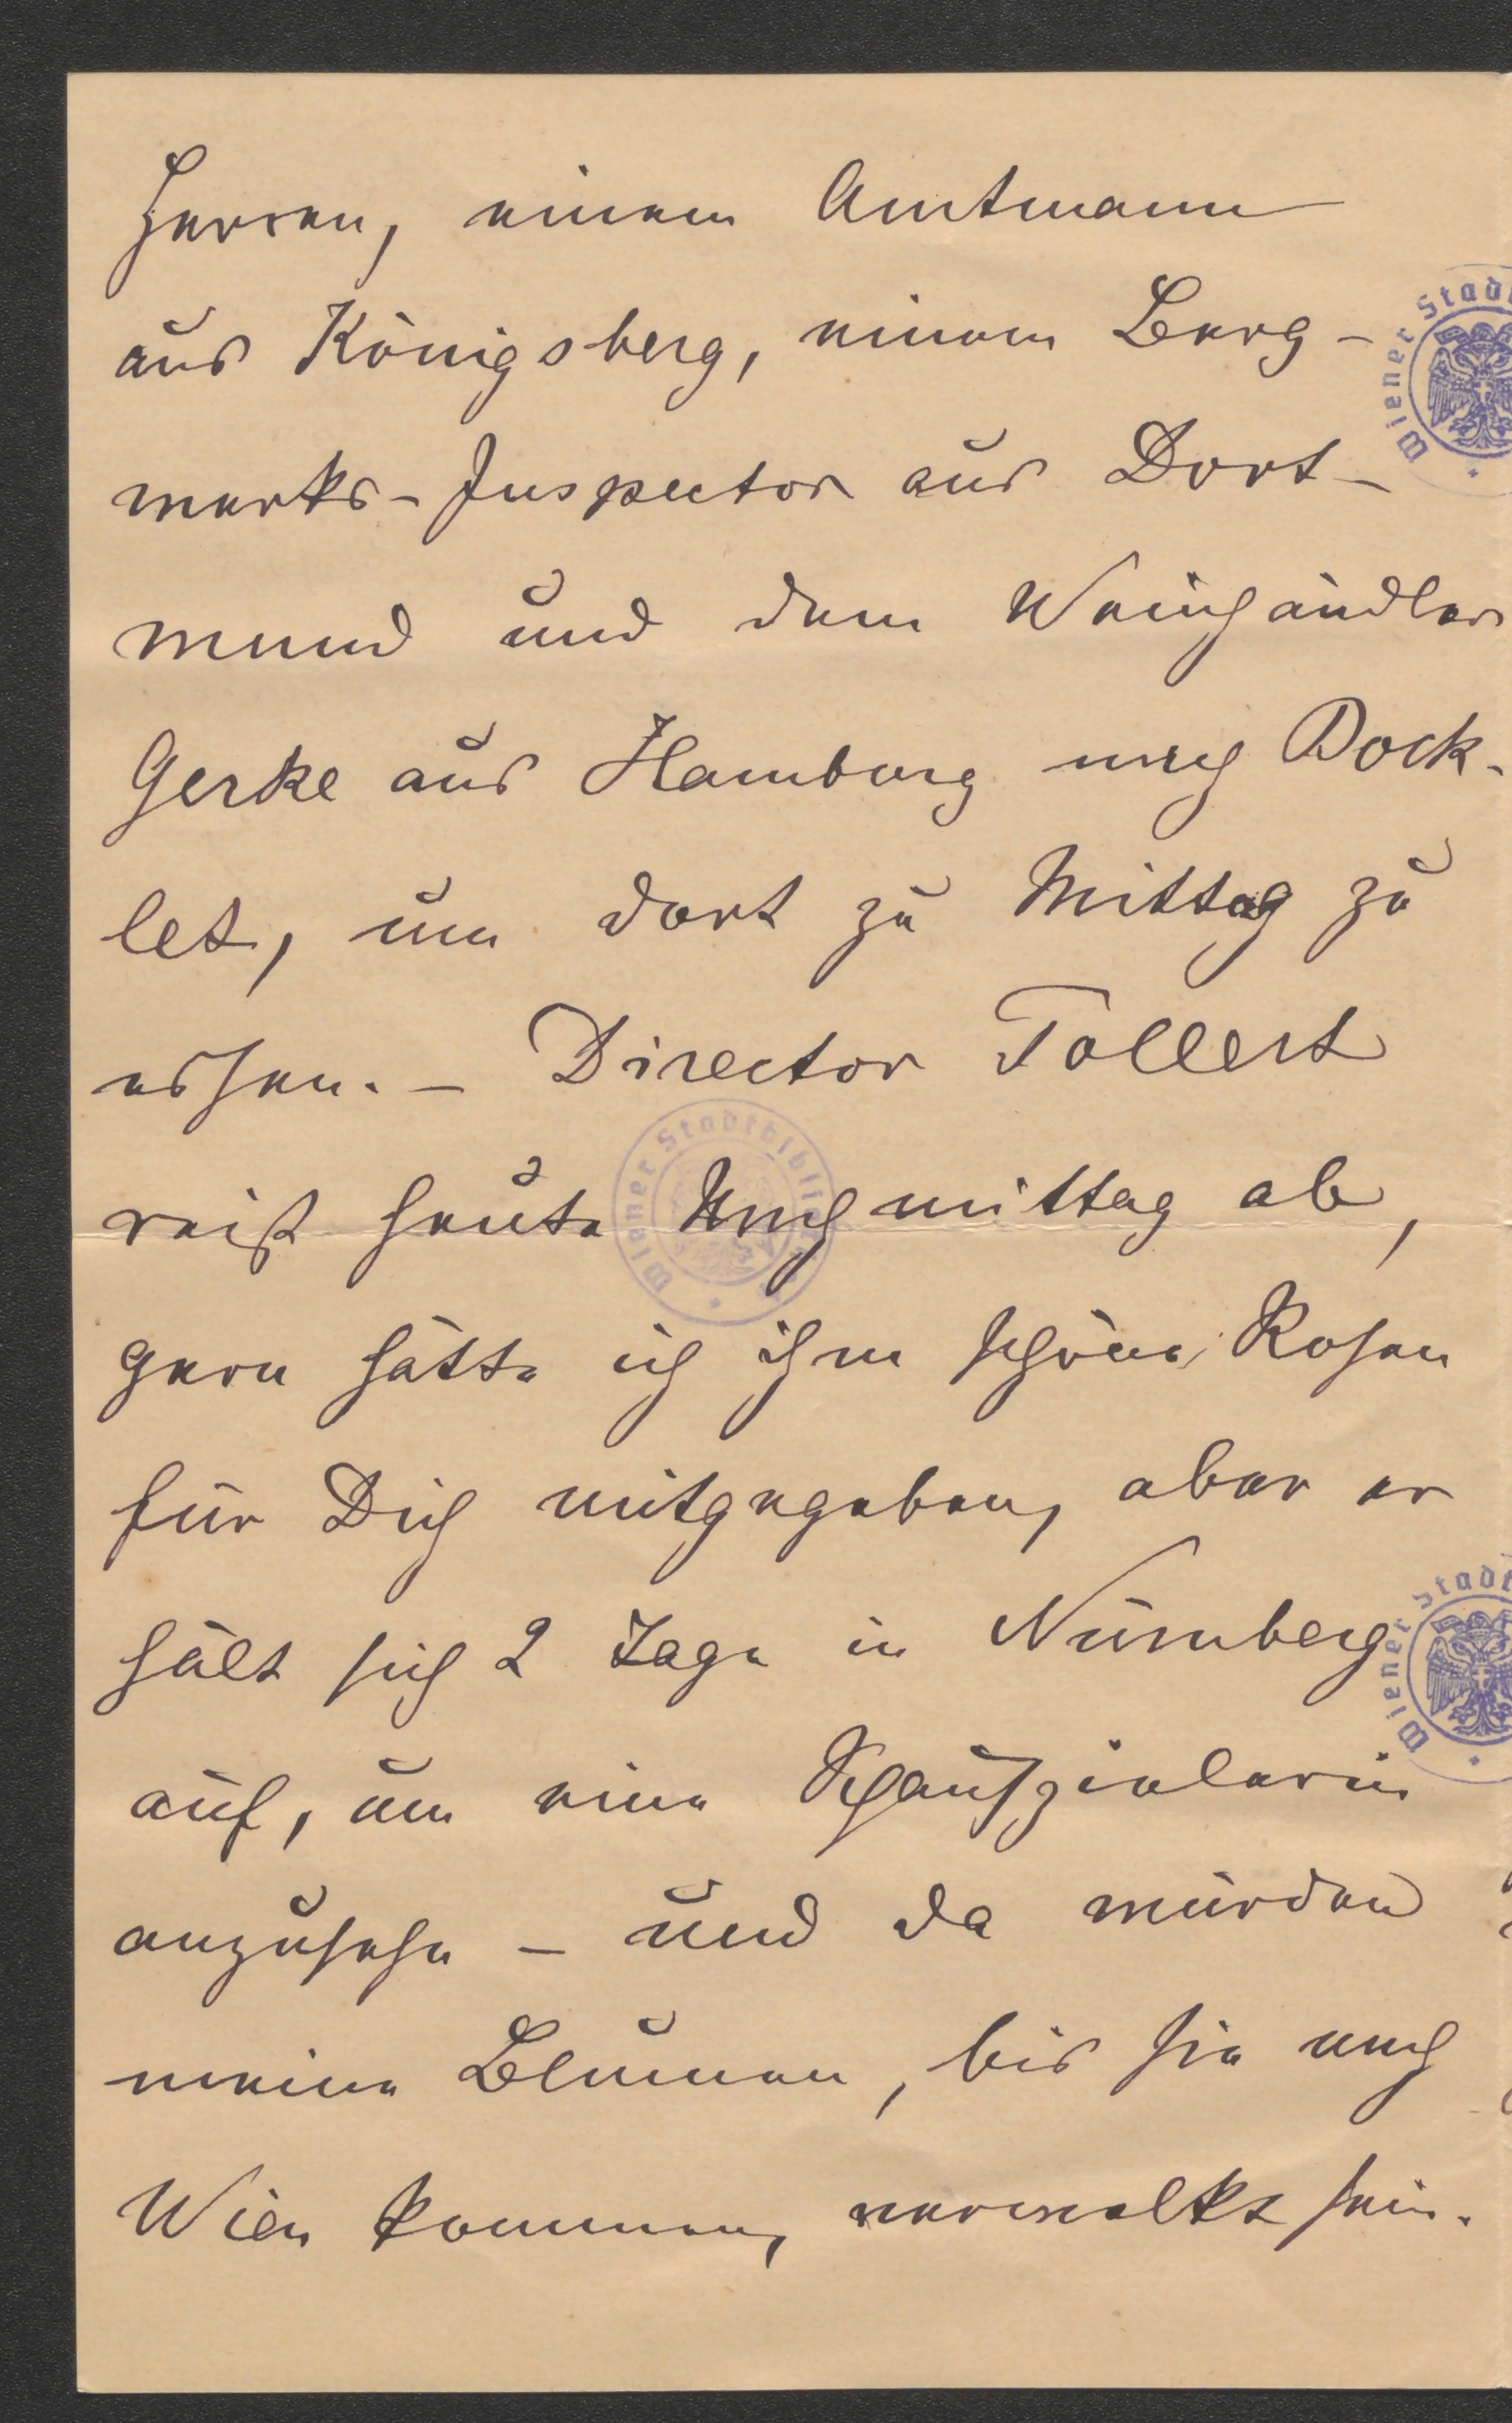 Herren, einem Amtmann
aus Königsberg, einem Berg-
werks-Inspector aus Dort-
mund und dem Weinhändler
Gerke aus Hamburg nach Bock-
let, um dort zu Mittag zu
essen. – Director Tollert
reist heute Nachmittag ab,
gern hätte ich ihm schöne Rosen
für Dich mitgegeben, aber er
hält sich 2 Tage in Nürnberg
auf, um eine Schauspielerin
anzusehn – und da würden
meine Blumen, bis sie nach
Wien kommen, verwelkt sein.
Wiener Stadt
Wiener Stadtbibliothek
Wiener Stadt